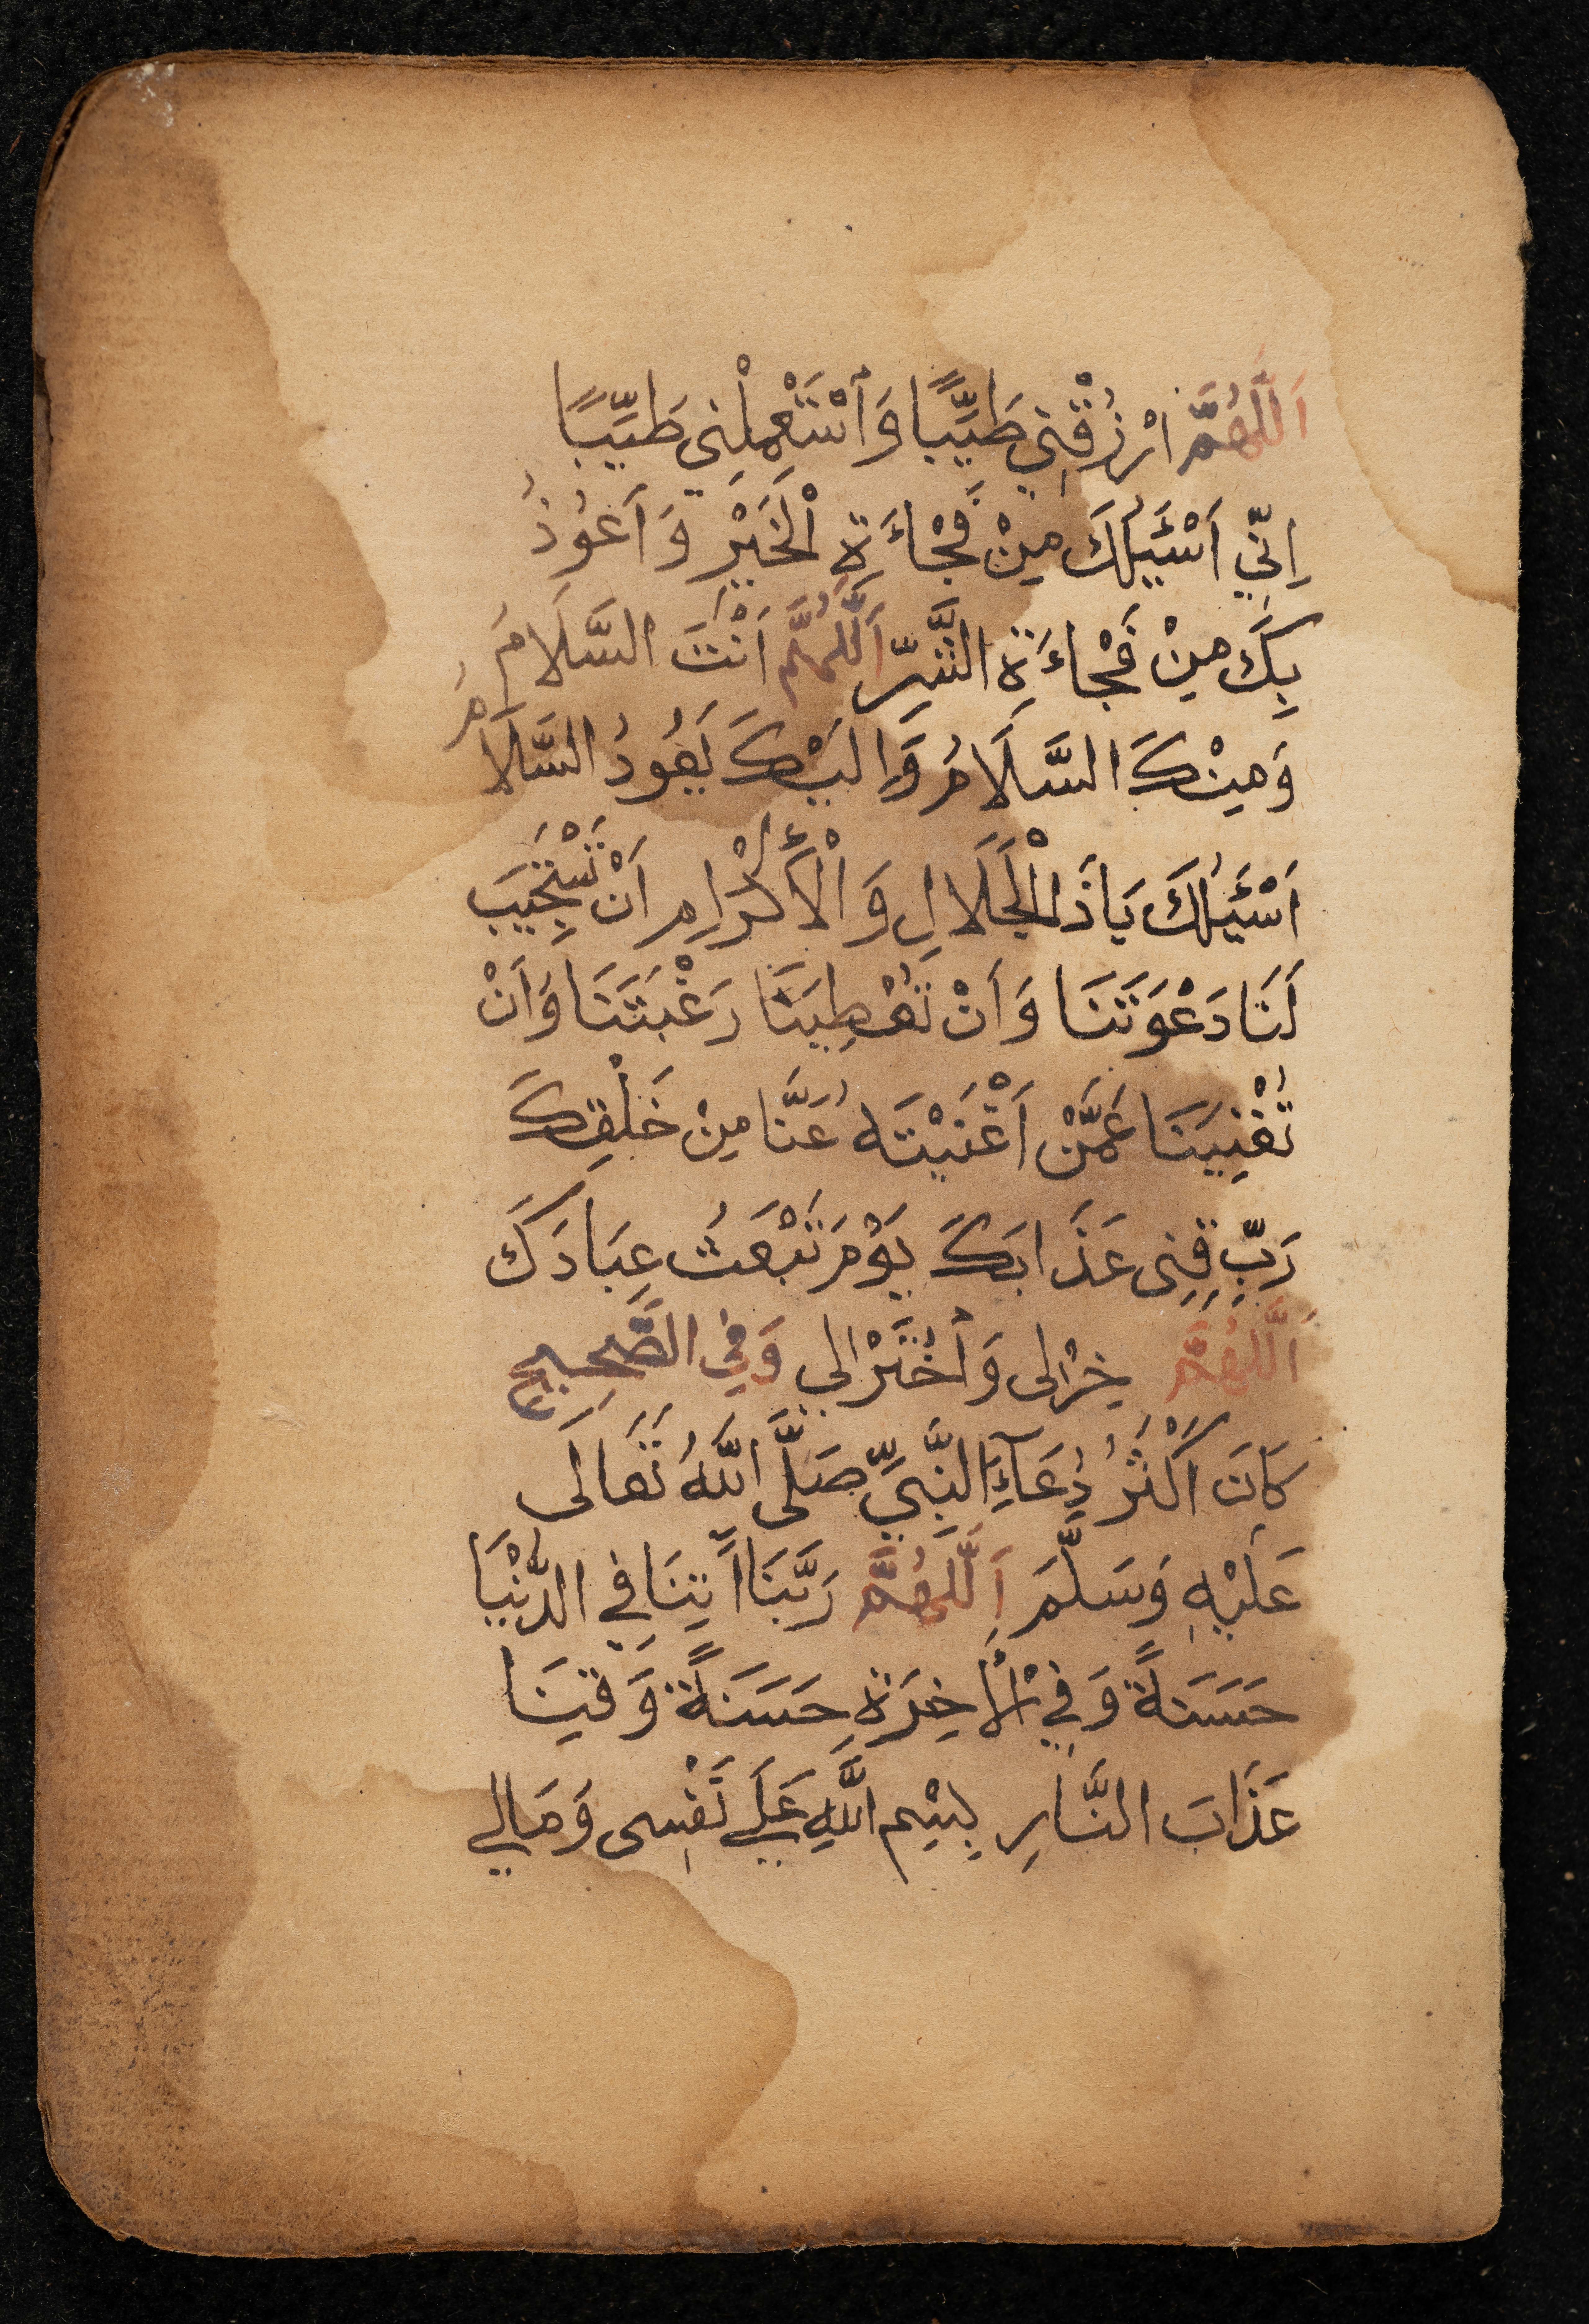 اَللّٰهُمَّ ارْزُقْنِي طَيِّبًا وَاسْتَعْمِلْنِي طَيِّبًا
اِنِّي اَسْئَلُكَ مِنْ فَجْاءَةِ الْخَيْرِ وَاَعُوذُ
بِكَ مِنْ فَجْاءَةِ الشَّرِّ اَللّٰهُمَّ اَنْتَ السَّلَامُ
وَمِنْكَ السَّلَامُ وَاِلَيْكَ يَعُودُ السَّلَامُ
اَسْئَلُكَ يَاذَا الْجَلَالِ وَالْأِكْرَامِ اَنْ تَسْتَجِيبَ
لَنَا دَعْوَتَنَا وَاَنْ تُعْطِيَنَا رَغْبَتَنَا وَاَنْ
تُغْنِيَنَا عَمَّنْ اَغْنَيْتَهُ عَنَّا مِنْ خَلْقِكَ
رَبِّ قِنِى عَذَابَكَ يَوْمَ تَبْعَثُ عِبَادَكَ
اَللّٰهُمَّ خِرْلِى وَاخْتَرْلِي وَفِي الصَّحِيحِ
كَانَ اَكْثَرُ دُعَآءِ النَّبِيِّ صَلَّى اللّٰهُ تَعَالَى
عَلَيْهِ وَسَلَّمَ اَللّٰهُمَّ رَبَّنَا اَتِنَا فِي الدُّنْيَا
حَسَنَةً وَفِي الْأَخِرَةِ حَسَنَةً وَقِنَا
عَذَابَ النَّارِ بِسْمِ اللّٰهِ عَلَى نَفْسِى وَمَالِي